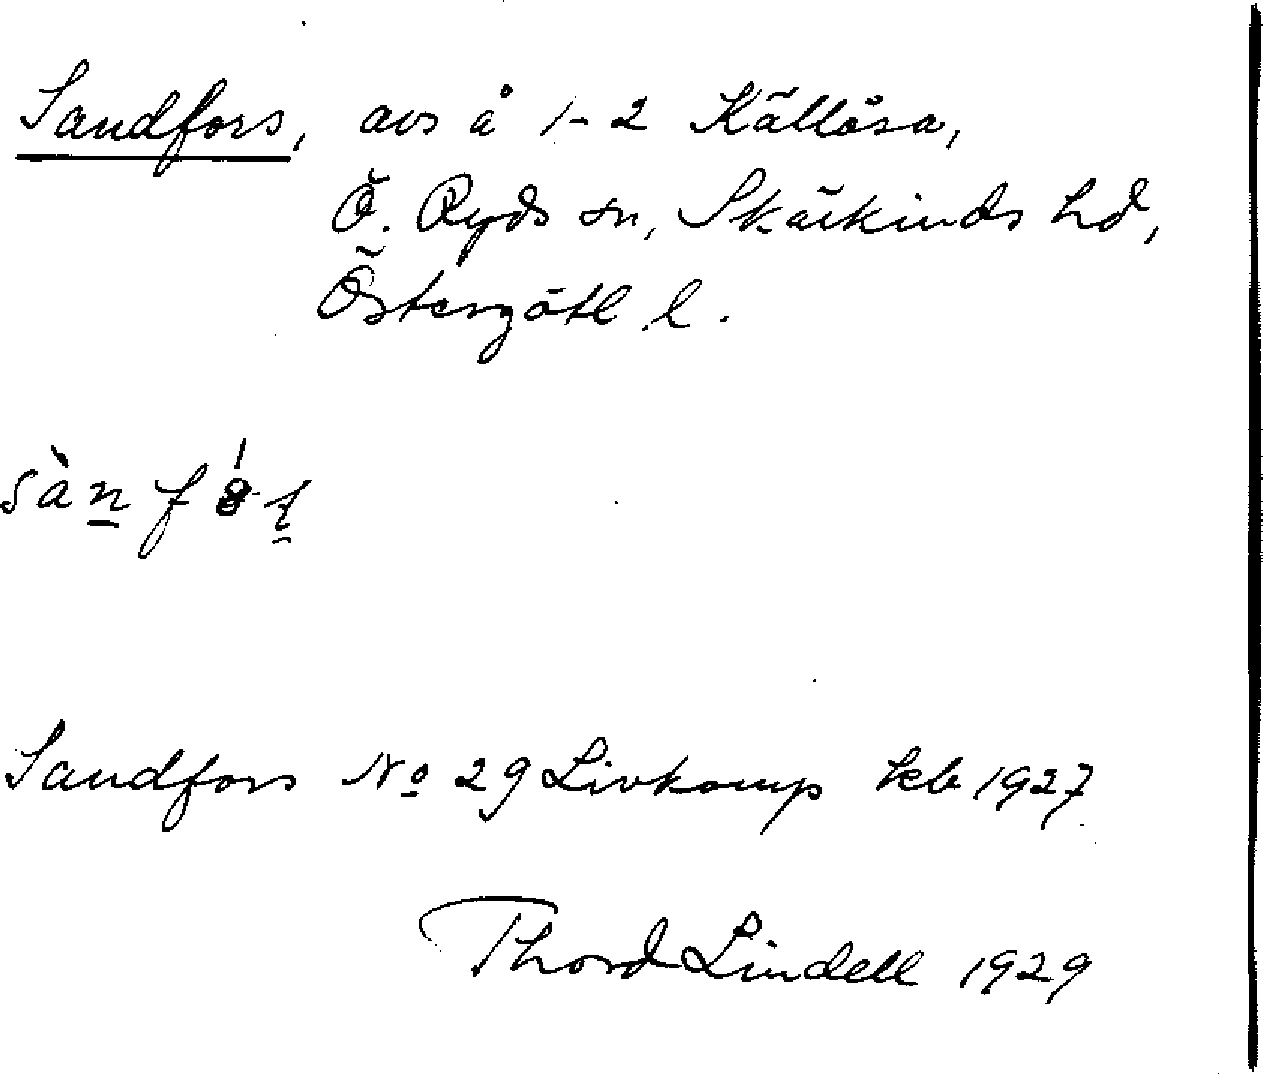 Sandfors, avs å 1-2 Källösa,
Ö. Ryds sn, Skärkinds hd,
Östergötl. l.
Sandfors No 29 Livkomp kb 1927
Thord Lindell 1929